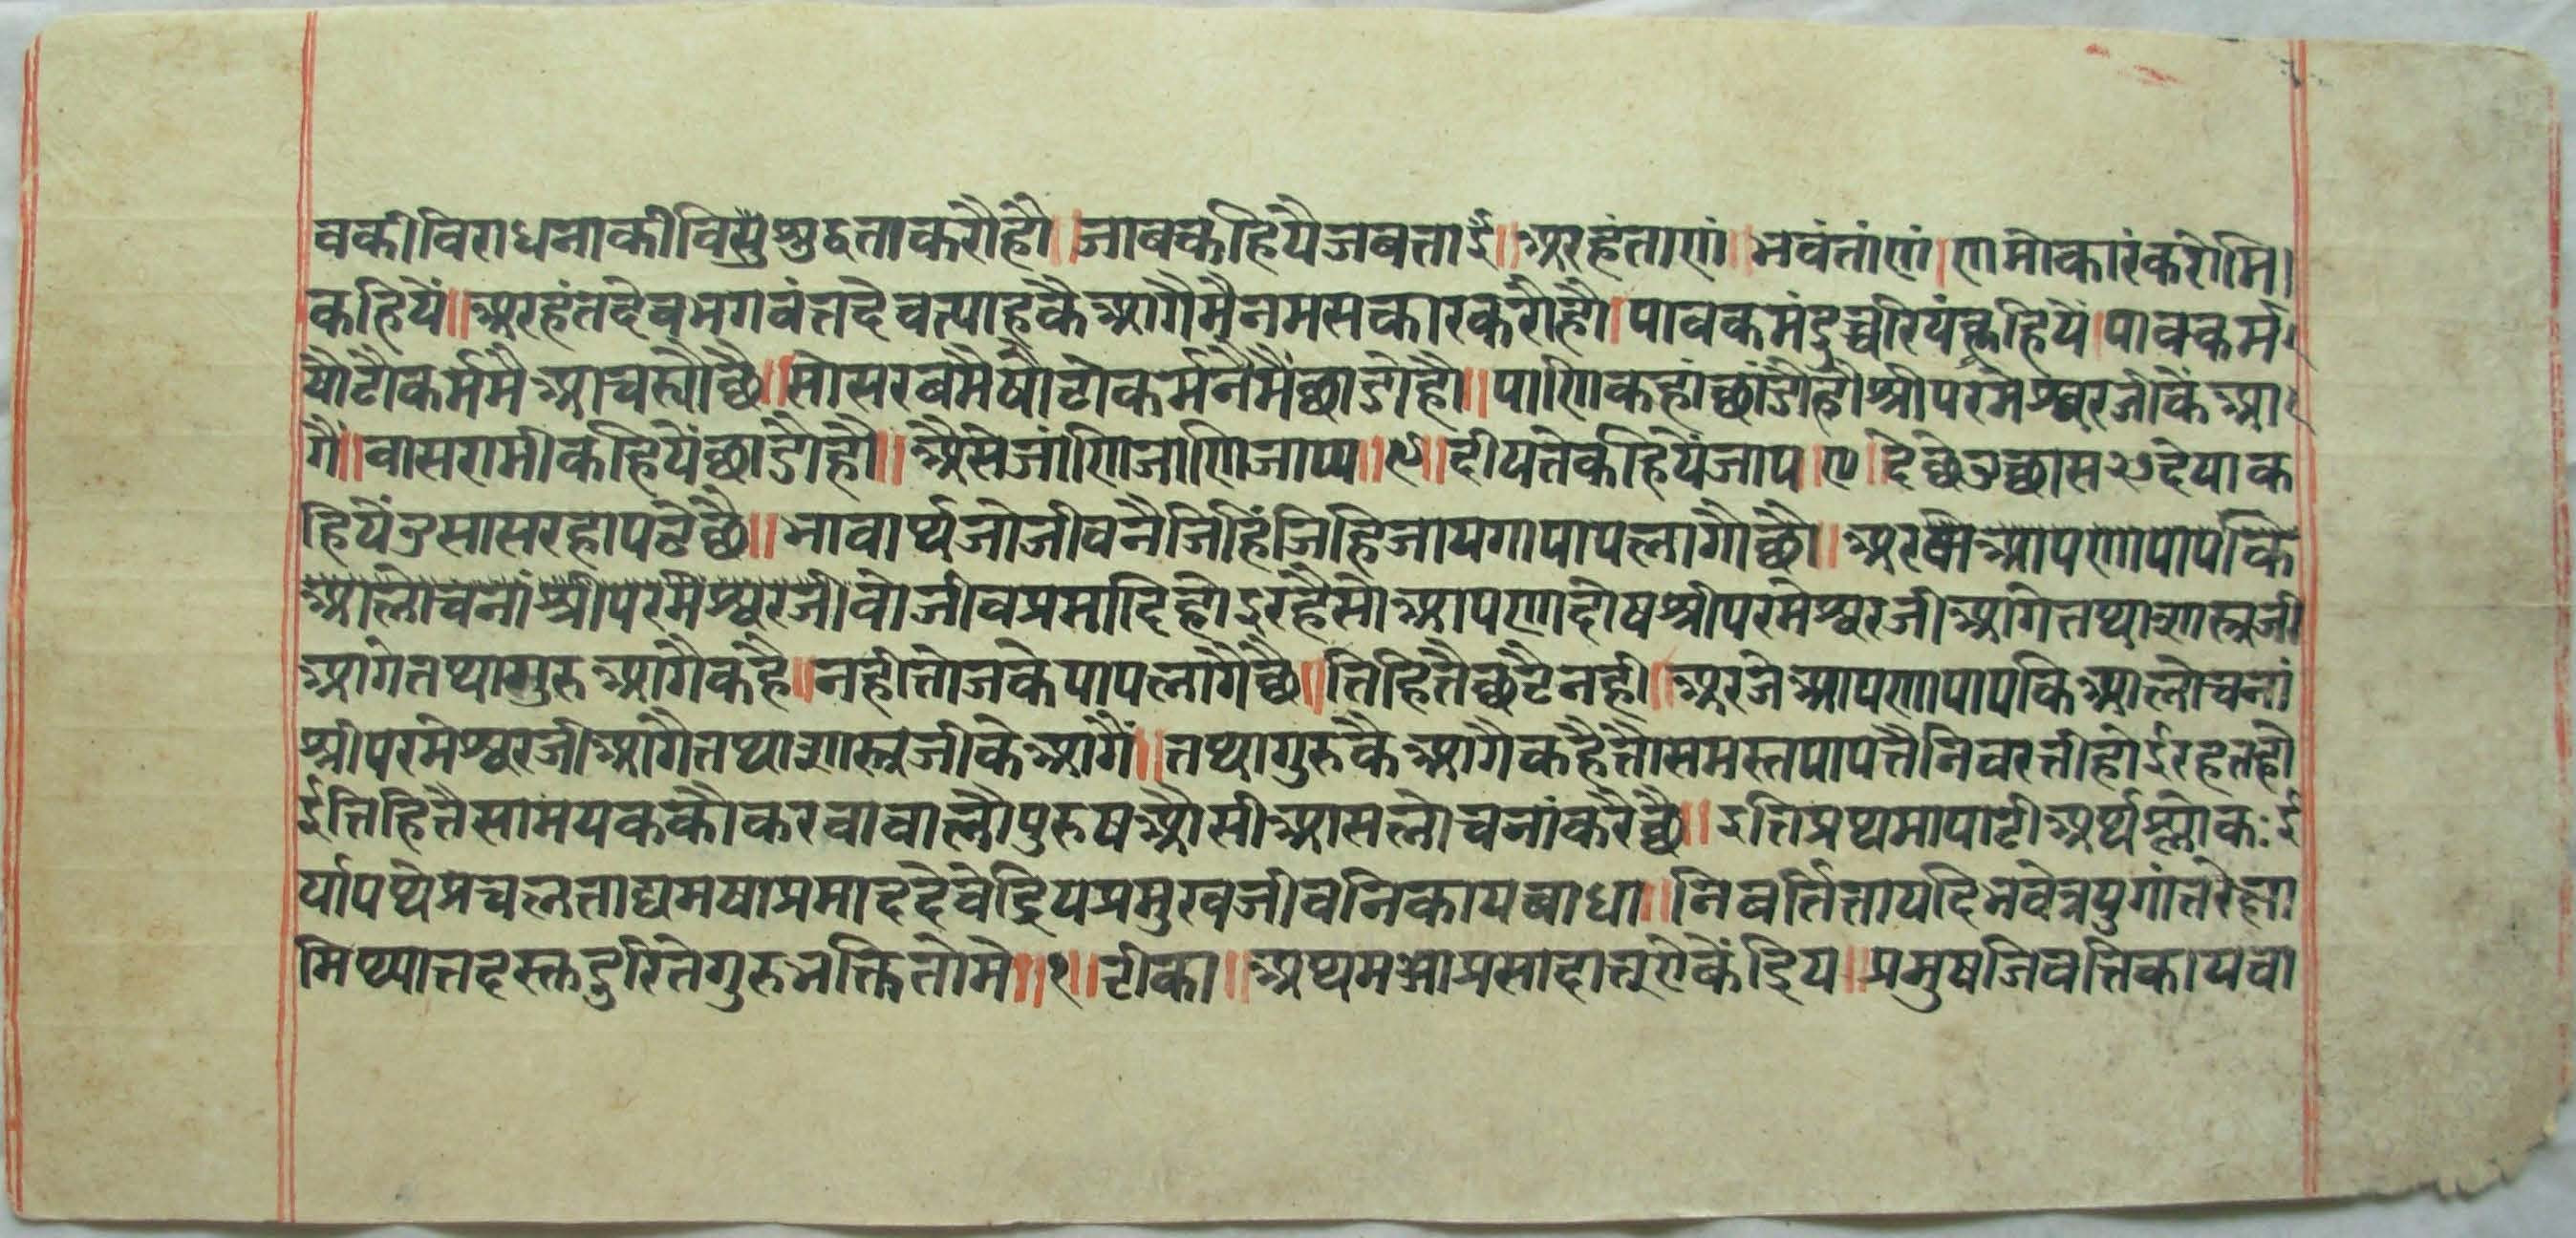 वकीविराधनाकीविसुशुद्धताकरौहौ॥जाबकहियैजबताईं॥अरहंताणं॥भवंतांणं।णमोकारंकरोमि।
कहियें॥अरहंतदेवभगवंतदेवत्याहकैआगैमैनमसकारकरौहौं।पावकमंदुच्चरियंकहियें।पावकर्म
षौटौकर्ममैआचस्यौछै॥सोसरबमैषौटोकर्मनैमैंछाडोहौ॥पाणिकहांछांडौहौश्रीपरमेश्वरजीकैंआ
गैं॥वासरामीकहियेंछाडौहौं॥औसेजांणिजाणिजाप्य॥९॥दीयतेकहियेंजाप।९।देछैउछास२७देयाक
हियेंउसासरहापटेछै॥भावार्थजोजीवनैजिहिंजिहिजायगापापलागौछौ॥अरवोआपणापापकि
आलोचनांश्रीपरमेश्वरजीवोजीवप्रमादिहोइरहैसोआपणादोषश्रीपरमेश्वरजीआगेतथाशास्त्रजी
आगेतथागुरुआगैकहै॥नहीतोजकेपापलागैछै॥तिहितैछटैनही॥अरजेआपणापापकिआलोचनां
श्रीपरमेश्वरजीआगैतथाशास्त्रजीकेआगैं॥तथागुरुकैआगैकहैतौसमस्तपापतैनिवरतीहोईरहतहौ
ईतिहितैसामयककौकरवावालौपुरुषऔसीआसलोचनांकरैछै॥इतिप्रथमापाटीअर्थश्लोकः॥ई
र्यापथेप्रचलताद्यमयाप्रमाददेवेंद्रियप्रमुखजीवनिकायबाधा॥निवर्तितायदिभवेन्नयुगांतरेक्षा
मिथ्यात्तदस्तदुरितंगुरुभक्तितोमे॥१॥टीका॥अथमआप्रसादात्एकेंद्रिय॥प्रमुषजिवत्तिकायवा